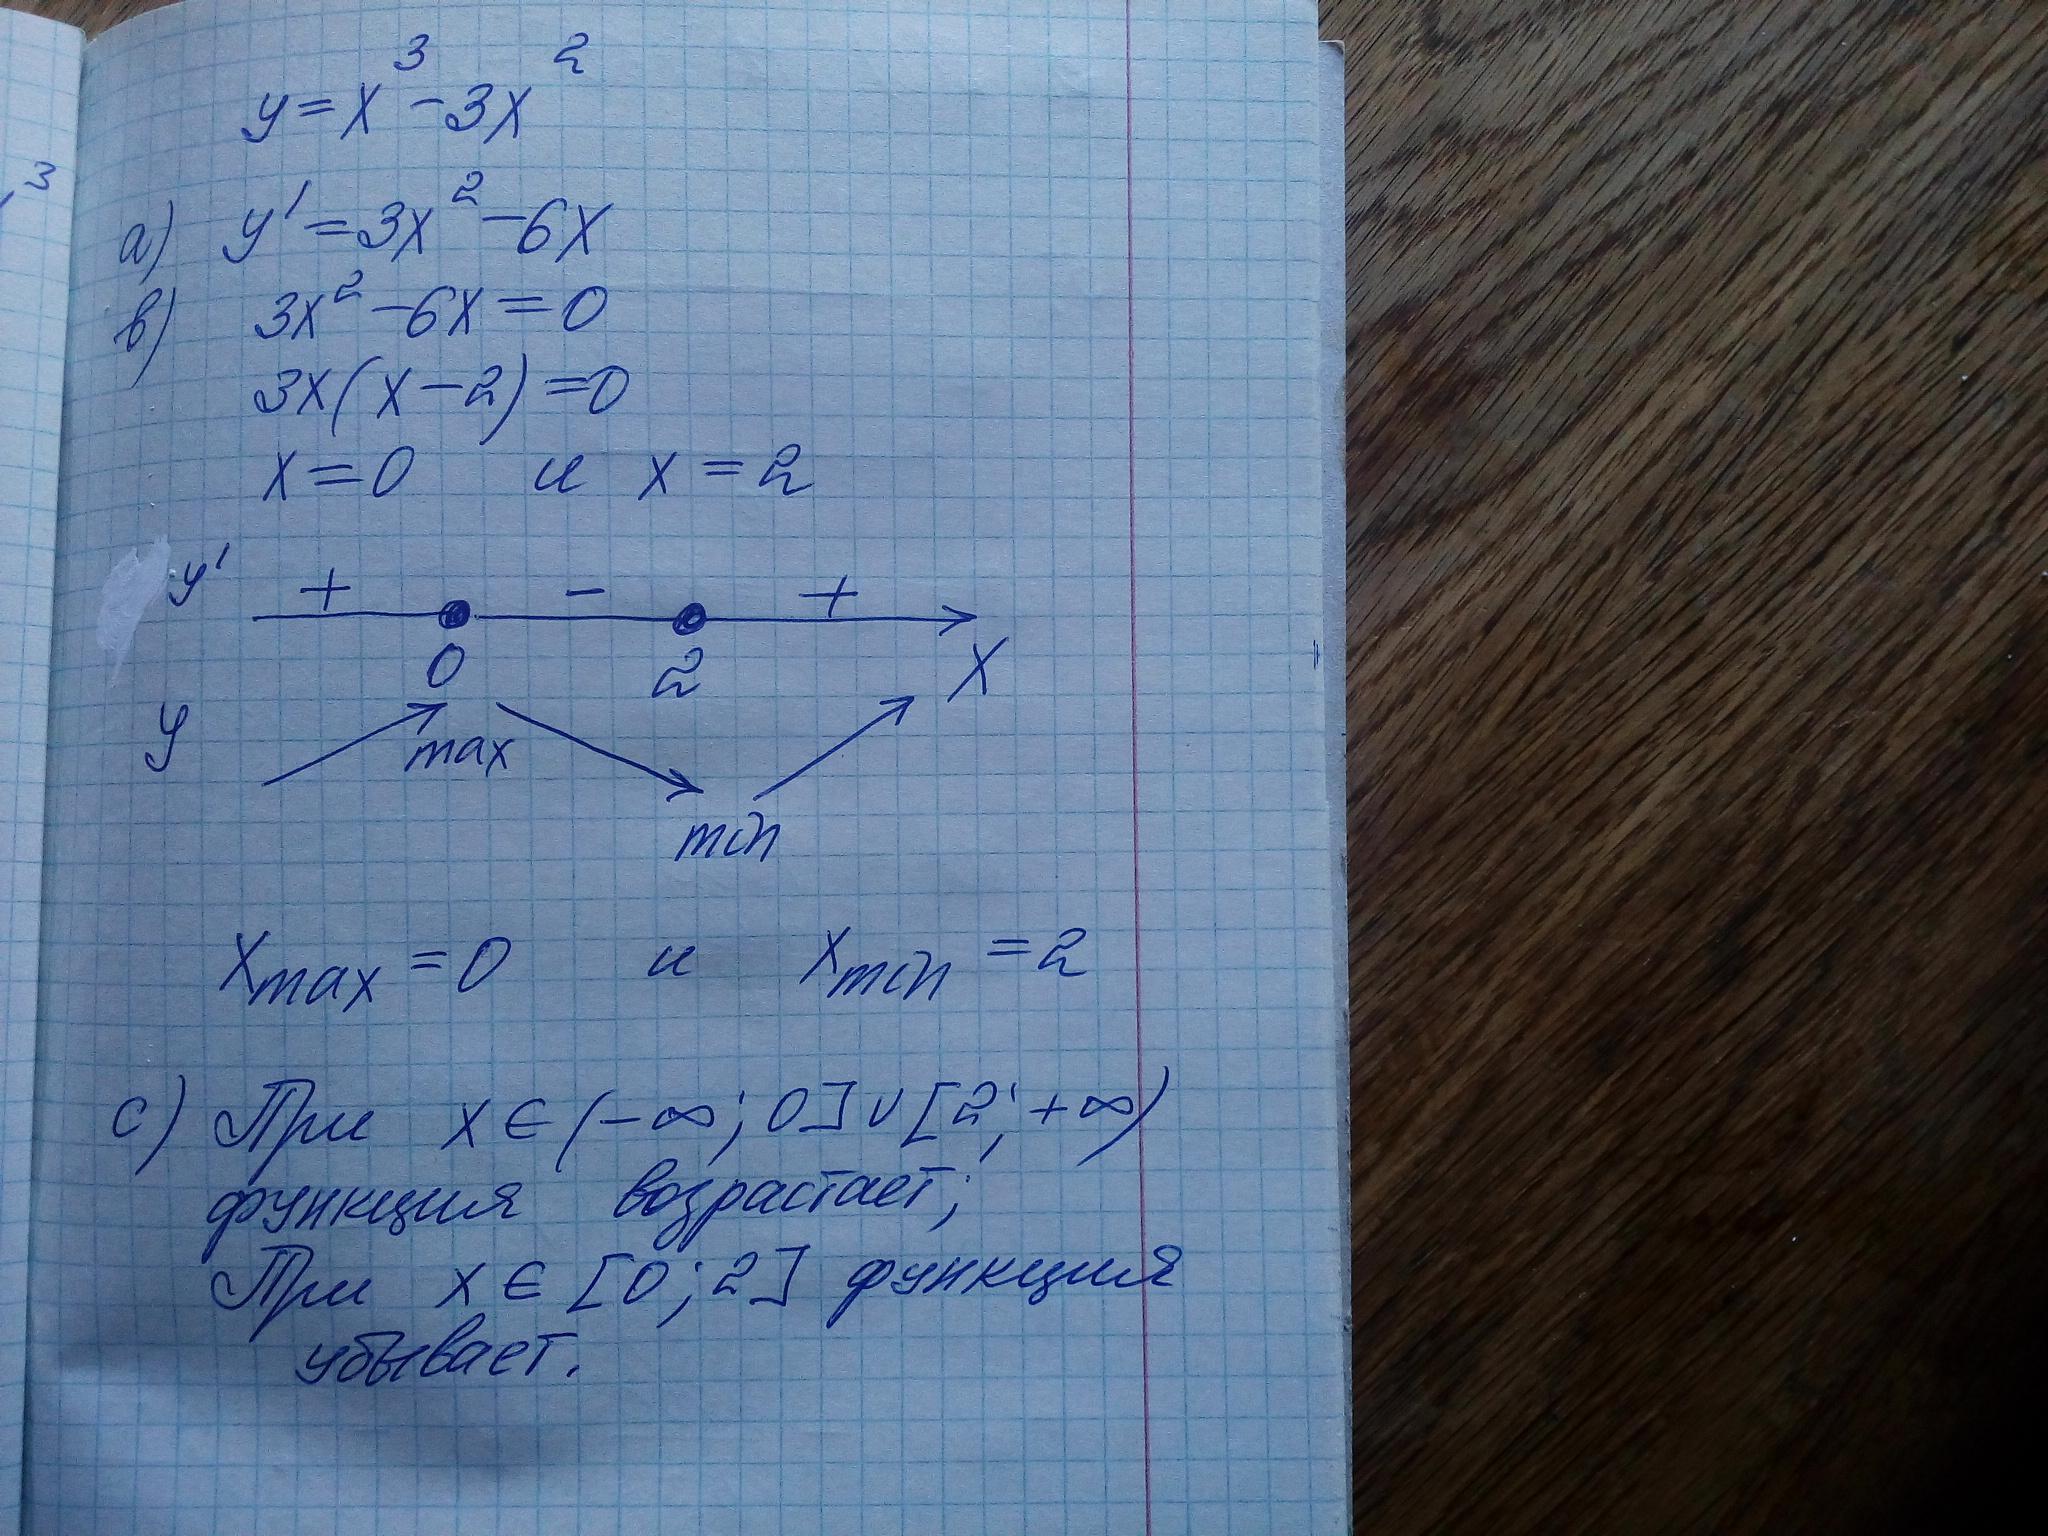 3
y = x³ - 3x²
a) y' = 3x² - 6x
b) 3x² - 6x = 0
3x(x - 2) = 0
x = 0 и x = 2
y' + - +
0 2 x
y max
min
x_max = 0 и x_min = 2
c) При x ∈ (-∞; 0] ∪ [2; +∞)
функция возрастает;
При x ∈ [0; 2] функция
убывает.